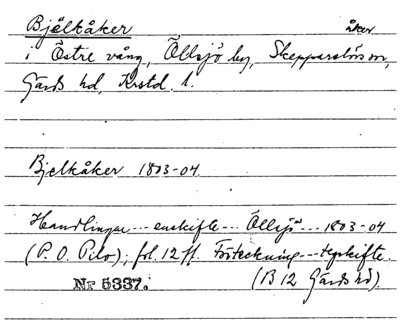 Bjälkåker åker
i Östre vång, Ällsjö by, Skepparslövs sn,
Gärds hd, Krstd. l.
Bjelkåker 1803-04.
Handlingar --- enskifte --- Öllsjö --- 1803-04
(P. O. Pilo), fol. 12 ff. Förteckning --- tegskifte.
Nr 5337. (B 12 Gärds hd).